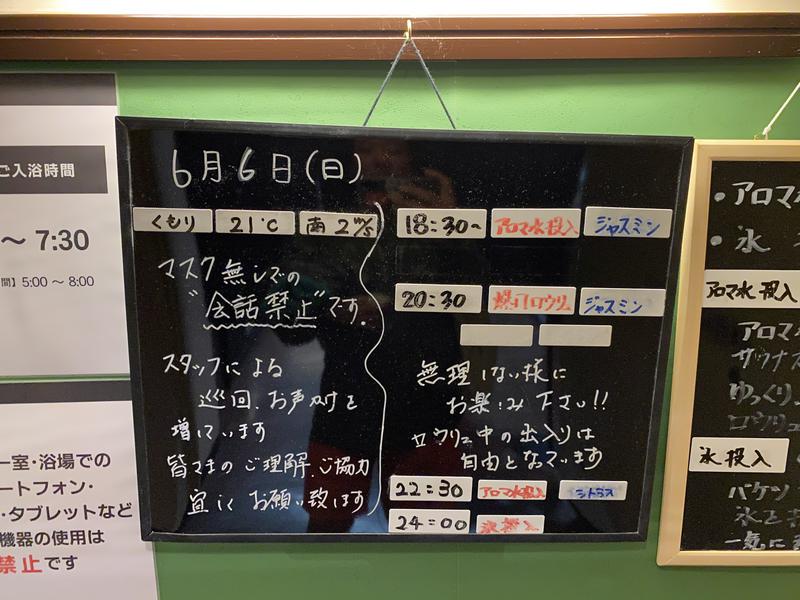 ご入浴時間
～ 7:30
間】5:00 ～ 8:00
一室・浴場での
ートフォン・
・タブレットなど
機器の使用は
禁止です
6月6日(日)
くもり 21℃ 南2m/s
マスク無しでの
"会話禁止"です.
スタッフによる
巡回、お声かけを
増しています
皆さまのご理解、ご協力
宜しくお願い致します
18:30～ アロマ水投入 ジャスミン
20:30 爆風ロウリュ ジャスミン
無理しない様に
お楽しみ下さい!!
ロウリュ中の出入りは
自由となっています
22:30 アロマ水投入 シトラス
24:00 氷投入
・アロマ
・氷
アロマ水投入
アロマ
サウナス
ゆっくり
ロウリュ
氷投入
バケツ
氷を
一気に